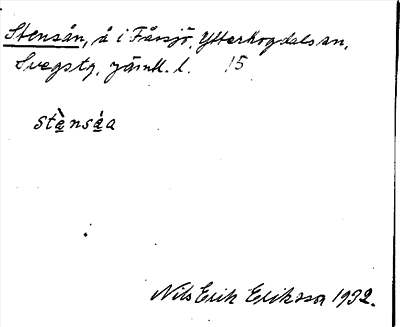 Stensån, å i Fåssjö, Ytterhogdals sn,
Svegs tg, Jämtl. l. 15
stè̱nsá̱a
Nils Erik Eriksson 1932.